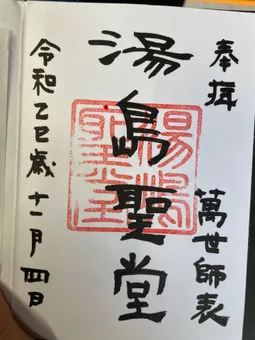 奉拝
萬世師表
湯島聖堂
湯島聖堂
令和乙巳歳十一月四日